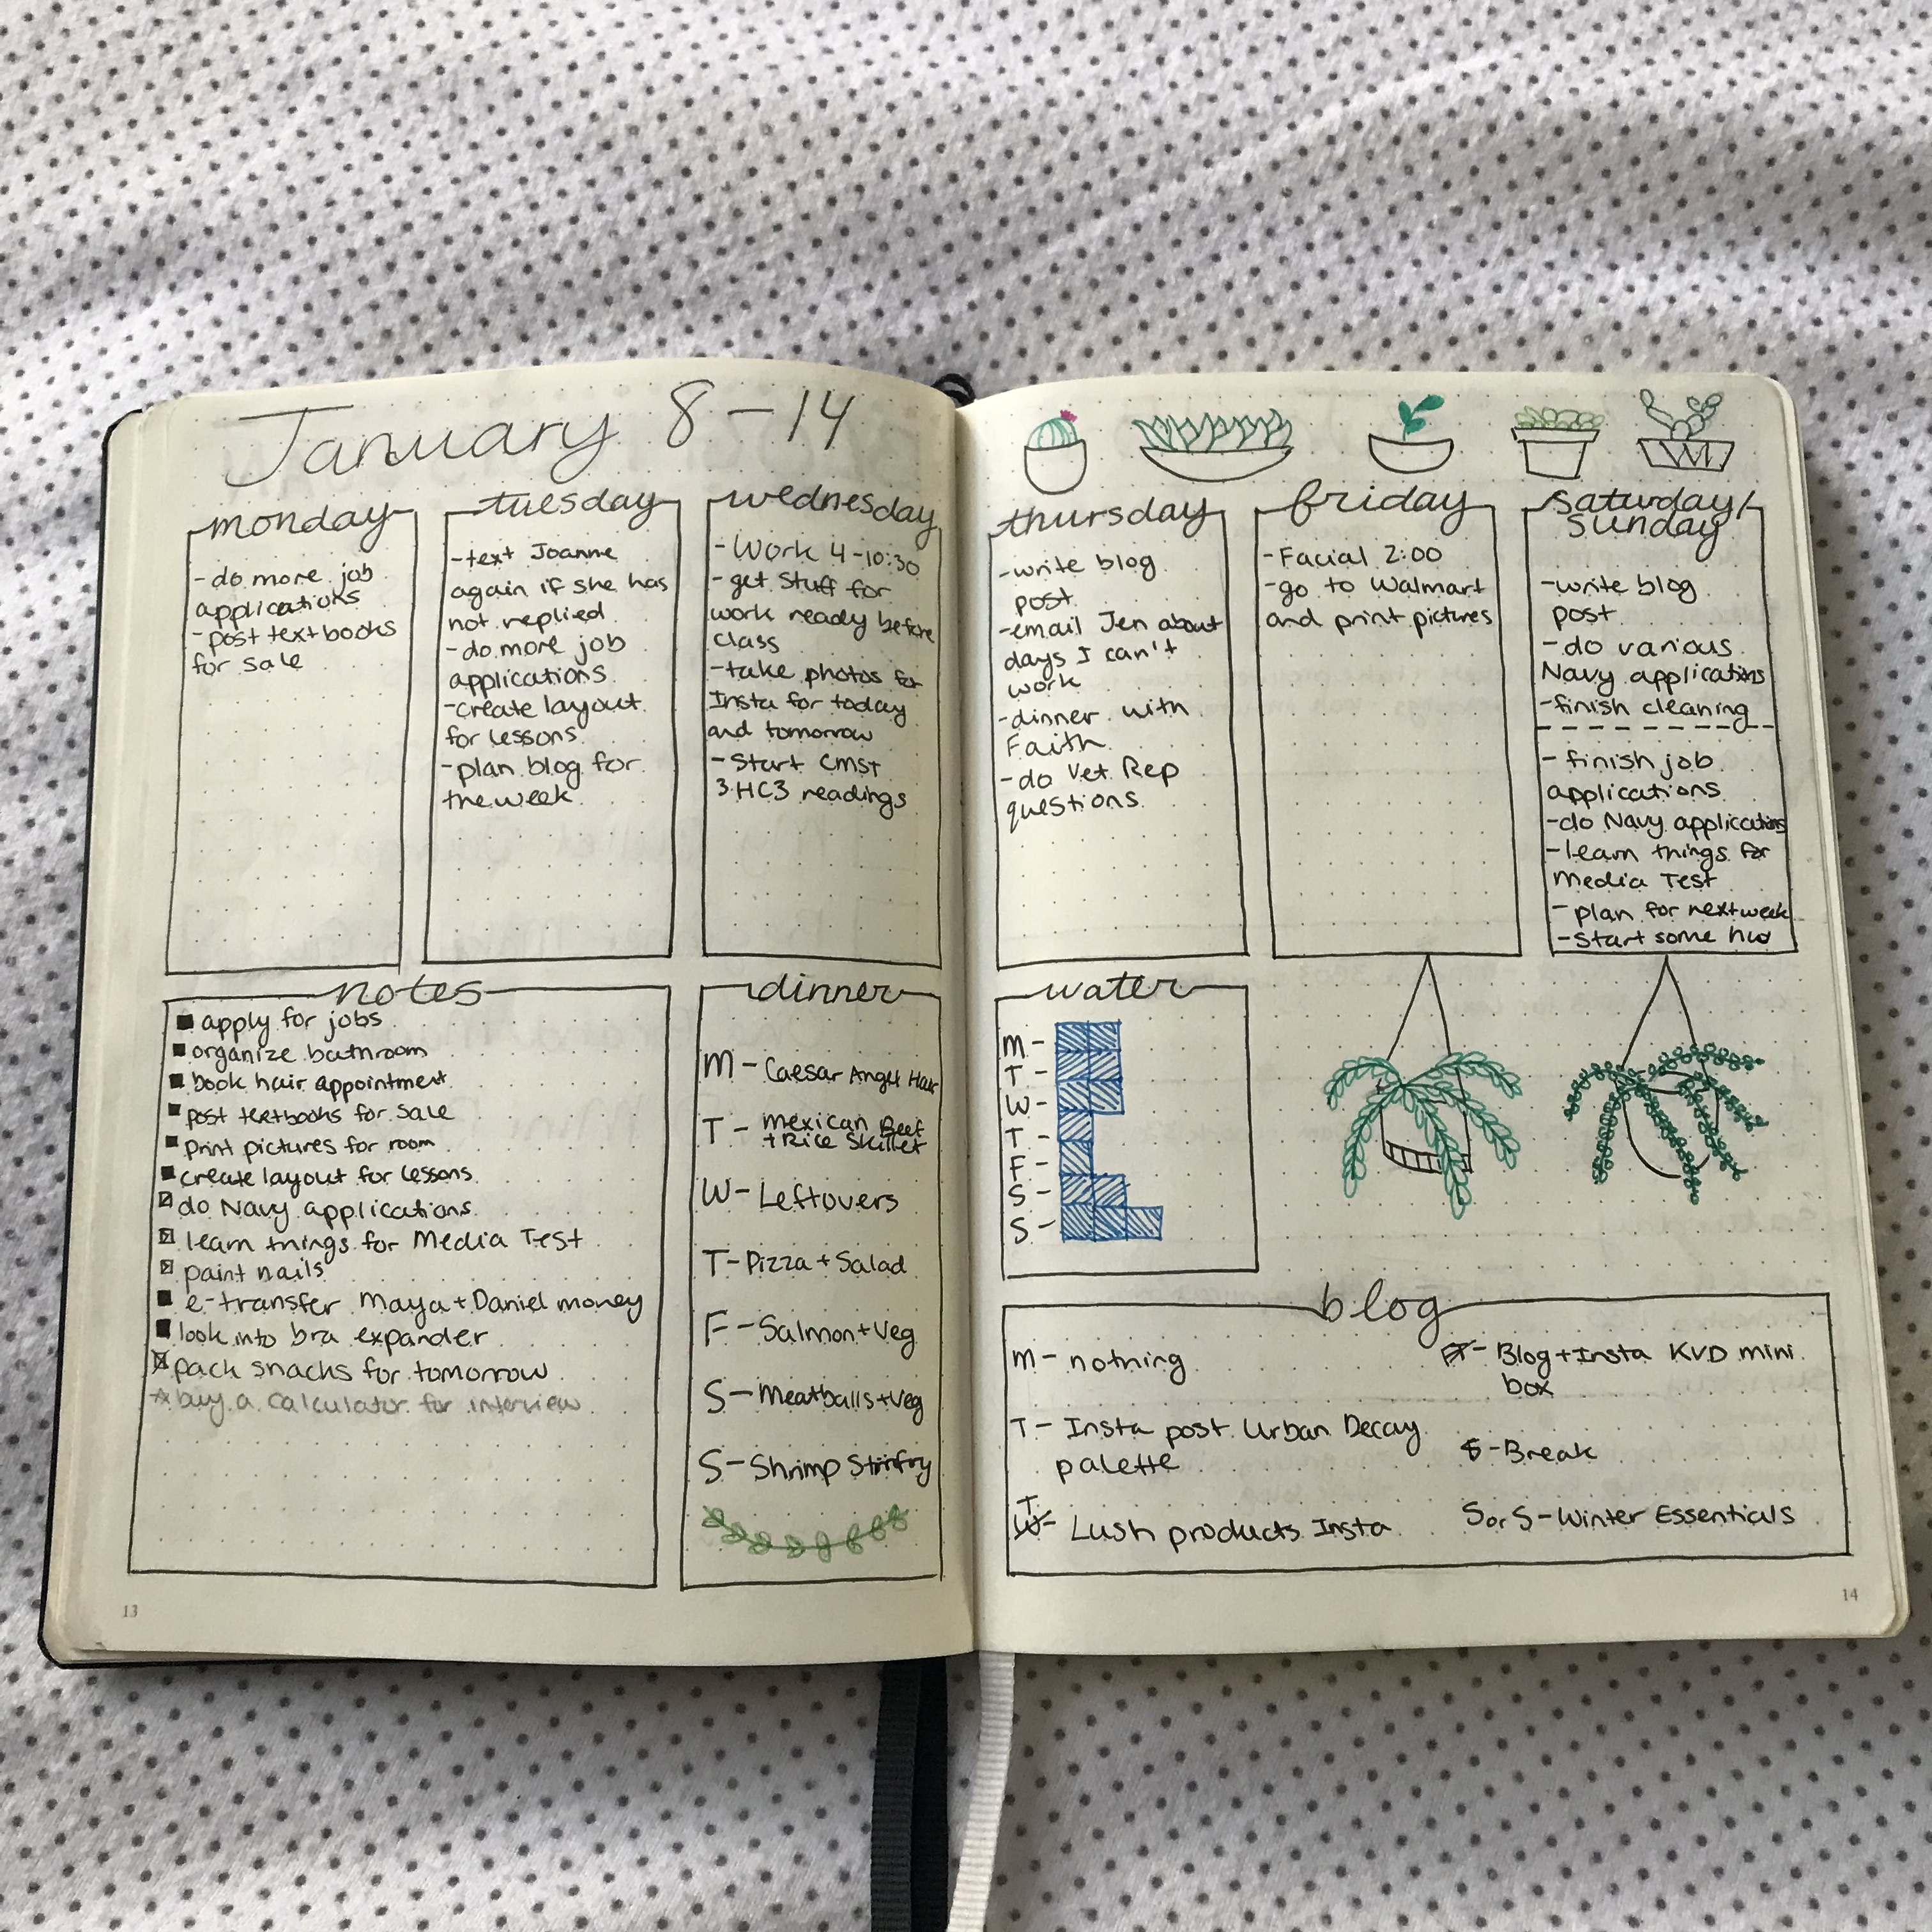 January 8-14
monday
-do more job
applications
-post textbooks
for sale
tuesday
-text Joanne
again if she has
not replied
-do more job
applications
-create layout
for lessons
-plan blog for
the week
wednesday
-Work 4-10:30
-get stuff for
work ready before
class
-take photos for
Insta for today
and tomorrow
-Start CMST
3HC3 readings
notes
apply for jobs
organize bathroom
book hair appointment
post textbooks for sale
print pictures for room
create layout for lessons
do Navy applications
learn things for Media Test
paint nails
e-transfer Maya+Daniel money
look into bra expander
pack snacks for tomorrow
buy a calculator for interview
dinner
M-Caesar Angel Hair
T-Mexican Beef
+Rice Skillet
W-Leftovers
T-Pizza+Salad
F-Salmon+Veg
S-Meatballs+Veg
S-Shrimp Stirfry
13
thursday
-write blog
post
-email Jen about
days I can't
work
-dinner with
Faith
-do Vet Rep
questions
friday
-Facial 2:00
-go to Walmart
and print pictures
saturday/
sunday
-write blog
post
-do various
Navy applications
-finish cleaning
-finish job
applications
-do Navy applications
-learn things for
Media Test
-plan for next week
-Start some hw
water
M-
T-
W-
T-
F-
S-
S-
blog
M-nothing
T-Insta post Urban Decay
palette
T
W-Lush products Insta
F-Blog+Insta KVD mini
box
S-Break
SorS-Winter Essentials
14